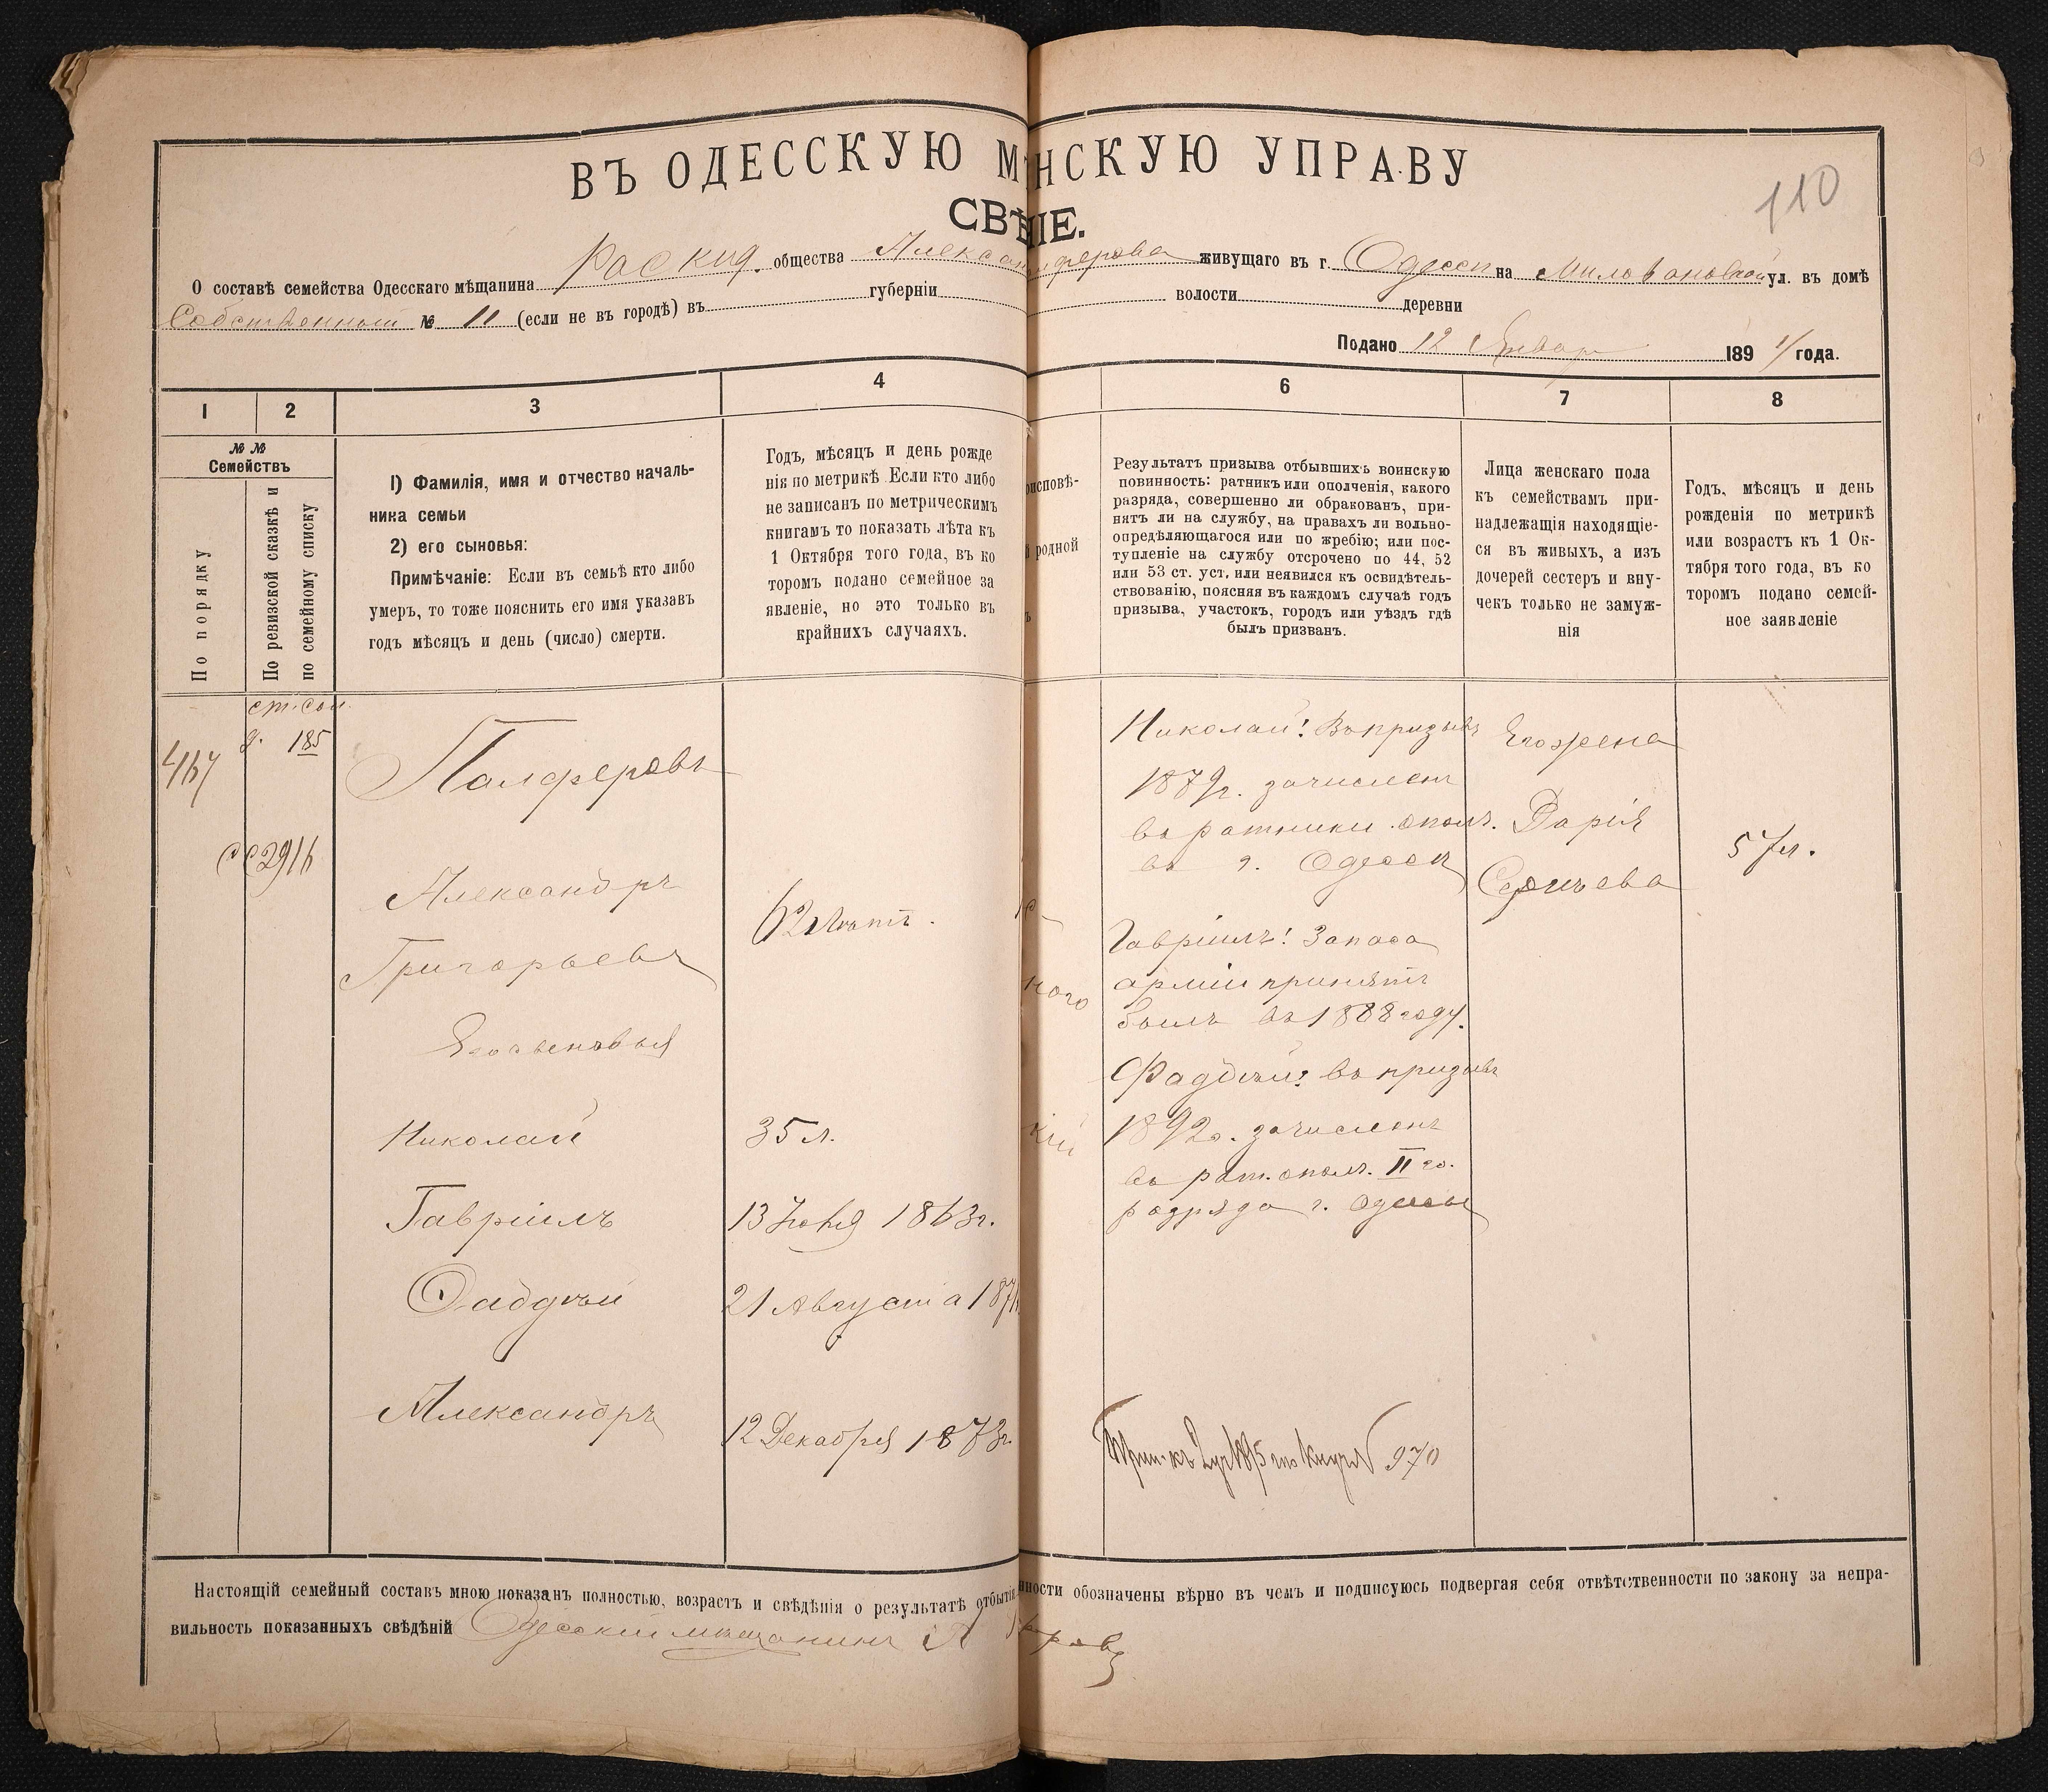 ВЪ ОДЕССКУЮ М НСКУЮ УПРАВУ
СВѢ НІЕ.
110
О составѣ семейства Одесскаго мѣщанина Раскид. общества Алексан ферова живущаго въ г. Одессѣ на Миловановской ул. въ домѣ
Собственный № 11 (если не въ городѣ) въ губерніи волости деревни
Подано 12 Январ 189 года.
1 2 3 4 6 7 8
№ №
Семействъ
По порядку
По ревизской сказкѣ и
по семейному списку
1) Фамилія, имя и отчество началь-
ника семьи
2) его сыновья:
Примѣчаніе: Если въ семьѣ кто либо
умеръ, то тоже пояснить его имя указавъ
годъ мѣсяцъ и день (число) смерти.
Годъ, мѣсяцъ и день рожде
нія по метрикѣ Если кто либо
не записанъ по метрическимъ
книгамъ то показать лѣта къ
1 Октября того года, въ ко
торомъ подано семейное за
явленіе, но это только въ
крайнихъ случаяхъ.
оисповѣ-
родной
ъ
Результатъ призыва отбывшихъ воинскую
повинность: ратникъ или ополченія, какого
разряда, совершенно ли обракованъ, при-
нятъ ли на службу, на правахъ ли вольно-
опредѣляющагося или по жребію; или пос-
тупленіе на службу отсрочено по 44, 52
или 53 ст. уст. или неявился къ освидѣтель-
ствованію, поясняя въ каждомъ случаѣ годъ
призыва, участокъ, городъ или уѣздъ гдѣ
былъ призванъ.
Лица женскаго пола
къ семействамъ при-
надлежащія находящіе-
ся въ живыхъ, а изъ
дочерей сестеръ и вну-
чекъ только не замуж-
нія
Годъ, мѣсяцъ и день
рожденія по метрикѣ
или возрастъ къ 1 Ок-
тября того года, въ ко
торомъ подано семей-
ное заявленіе
185
Палферовъ
Александръ
Григорьевъ
62 лѣтъ.
Его сыновья
Николай
35 л.
Гавріилъ
13 Іюня 1863г.
Фаддѣй
21 Августа 187
Александръ
12 Декабря 1873г.
ного
кій
Николай: Въ призывъ
1879г. зачисленъ
въ ратники ополч.
въ г. Одессѣ
Гавріилъ: Запаса
арміи принятъ
былъ въ 1888 году.
Фаддѣй: въ призывъ
1892г. зачисленъ
въ рат. ополч. II го.
разряда г. Одессы
970
Его жена
Дарія
Сергѣева
57 л.
Настоящій семейный составъ мною показанъ полностью, возрастъ и свѣдѣнія о результатѣ отбытія нности обозначены вѣрно въ чемъ и подписуюсь подвергая себя отвѣтственности по закону за непра-
вильность показанныхъ свѣдѣній Одесскій мѣщанинъ А